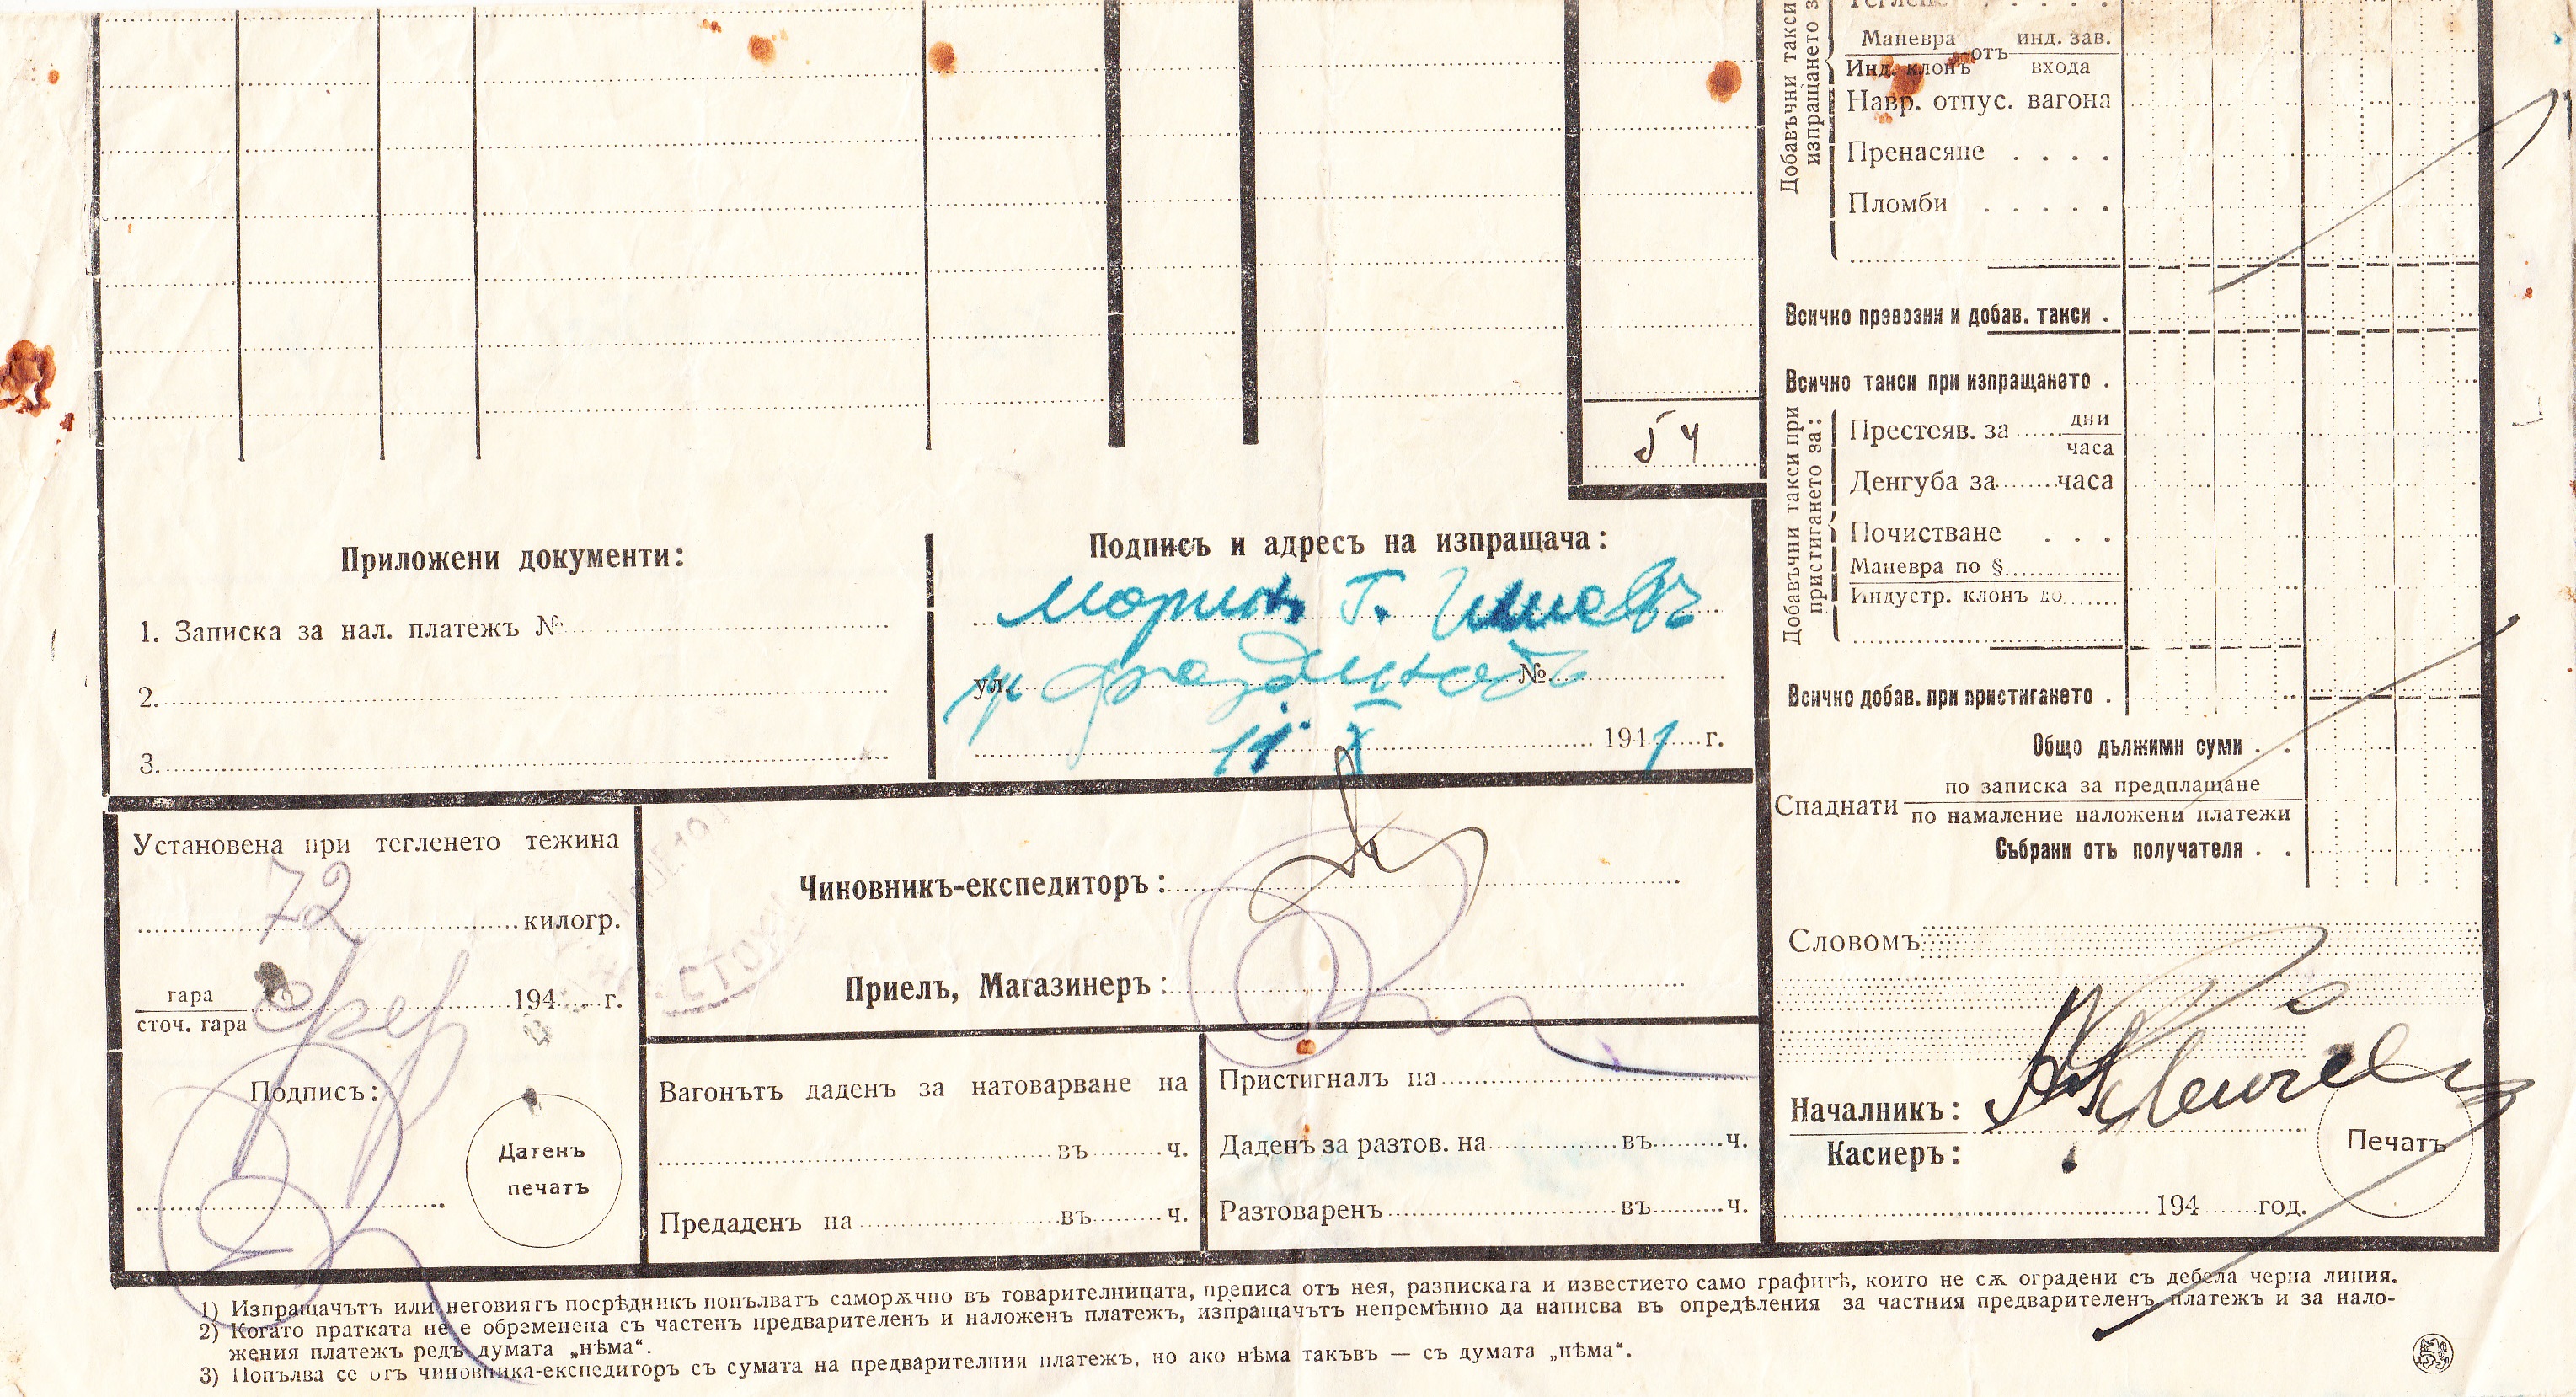 Добавъчни такси
изпращането з
Теглене . . . .
Маневра отъ инд. зав.
Инд. клонъ входа
Навр. отпус. вагона
Пренасяне . . . .
Пломби . . . . .
Всичко превозни и добав. такси .
Всичко такси при изпращането .
Добавъчни такси при
пристигането за:
Престояв. за ...... дни
часа
Денгуба за ...... часа
Почистване . . .
Маневра по § ......
Индустр. клонъ до ......
Всичко добав. при пристигането .
Общо дължими суми . .
Спаднати по записка за предплащане
по намаление наложени платежи
Събрани отъ получателя . .
Словомъ
Началникъ:
Касиеръ:
Печатъ
194 ...... год.
54
Приложени документи:
1. Записка за нал. платежъ №
2.
3.
Подписъ и адресъ на изпращача:
Г.
ул. №
11 X 1941 г.
Установена при тегленето тежина
72 килогр.
гара 194 ...... г.
сточ. гара
Подписъ:
Датенъ
печатъ
Чиновникъ-експедиторъ:
Приелъ, Магазинеръ:
Вагонътъ даденъ за натоварване на
въ ...... ч.
Предаденъ на ...... въ ...... ч.
Пристигналъ на
Даденъ за разтов. на ...... въ ...... ч.
Разтоваренъ ...... въ ...... ч.
1) Изпращачътъ или неговиятъ посрѣдникъ попълватъ саморѫчно въ товарителницата, преписа отъ нея, разписката и известието само графитѣ, които не сѫ оградени съ дебела черна линия.
2) Когато пратката не е обременена съ частенъ предварителенъ и наложенъ платежъ, изпращачътъ непремѣнно да написва въ опредѣления за частния предварителенъ платежъ и за нало-
жения платежъ редъ думата „нѣма“.
3) Попълва се отъ чиновника-експедиторъ съ сумата на предварителния платежъ, но ако нѣма такъвъ — съ думата „нѣма“.